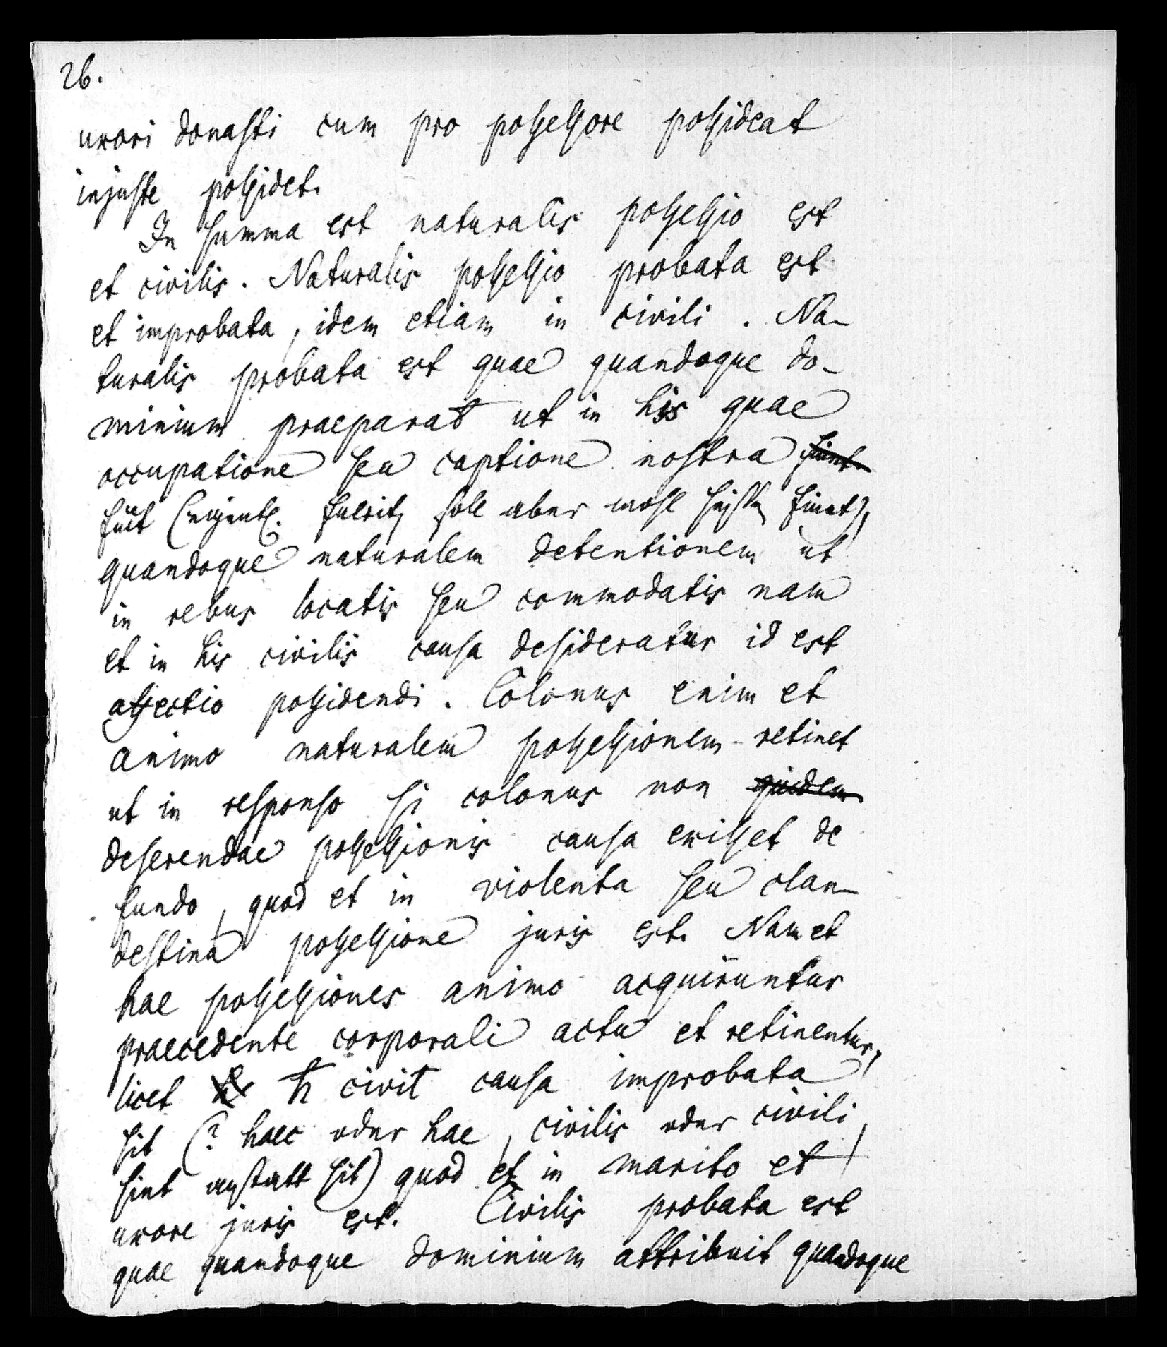 26.
uxori donasti cum pro possessore possideat
injuste possidet.
In summa est naturalis possessio est
et civilis. Naturalis possessio probata est
et improbata, idem etiam in civili. Na-
turalis probata est quae quandoque do-
minium praeparat ut in his quae
occupatione seu captione nostra sint
fiūt (eigentl. fuerit, soll aber wohl heißen fiunt),
quandoque naturalem detentionem ut
in rebus locatis seu commodatis nam
et in his civilis causa desideratur id est
affectio possidendi. Colonus enim et
animo naturalem possessionem retinet
ut in responso si colonus non quidem
deserendae possessionis causa exisset de
fundo, quod et in violenta seu clan-
destina possessione juris est. Nam et
hae possessiones animo acquiruntur
praecedente corporali actu et retinentur,
licet h civit causa improbata
sit (? haec oder hae, civilis oder civili,
sint anstatt sit) quod et in marito et
uxore juris est. Civilis probata est
quae quandoque dominium attribuit quandoque